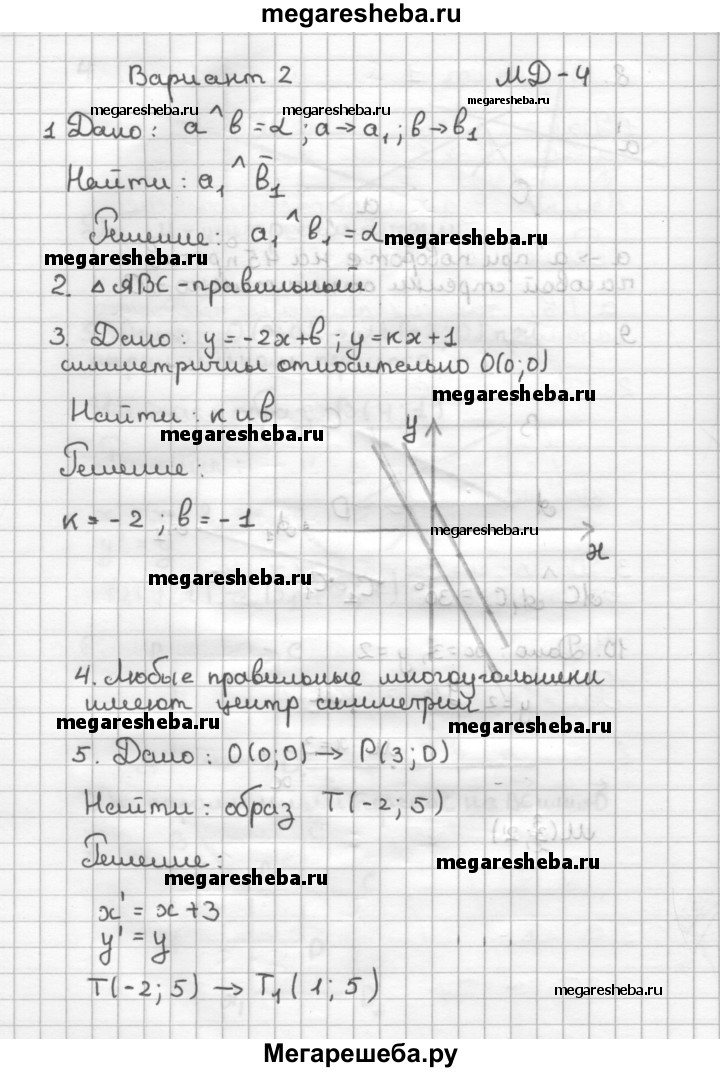 megaresheba.ru
Вариант 2 МД-4
megaresheba.ru megaresheba.ru megaresheba.ru
1 Дано: a^b = α; a → a₁; b → b₁
Найти: a₁^b̄₁
Решение: a₁^b₁ = α
megaresheba.ru megaresheba.ru
2. △ABC - правильный
3. Дано: y = -2x+b; y = kx+1
симметричны относительно O(0;0)
megaresheba.ru
Найти: k и b
megaresheba.ru
y
Решение:
k = -2; b = -1
megaresheba.ru
x
megaresheba.ru
4. Любые правильные многоугольники
имеют центр симметрий
megaresheba.ru megaresheba.ru
5. Дано: O(0;0) → P(3;0)
Найти: образ T(-2;5)
Решение:
megaresheba.ru megaresheba.ru
x' = x+3
y' = y
T(-2;5) → T₁(1;5)
megaresheba.ru
Мегарешеба.ру